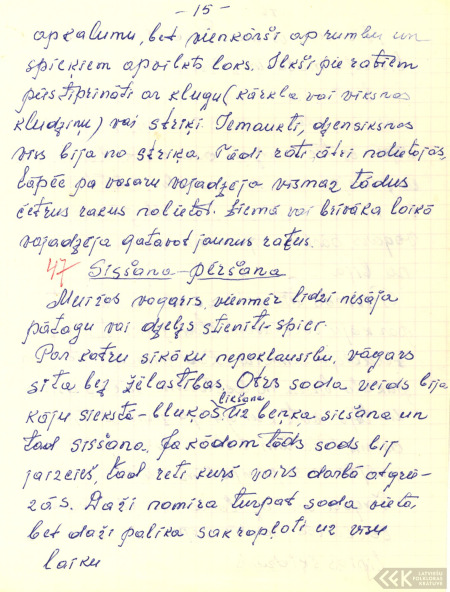 - 15 -
apkalumu, bet vienkārši aprumbu un
spieķiem apvilkts loks. Ilkši pie ratiem
piestiprināti ar klugu (kārkla vai vīksnas
kludziņu) vai striķi. Iemaukti, dzensiksnas
viss bija no striķa. Tādi rati, ātri nolietojās,
tāpēc pa vasaru vajadzēja vismaz tādus
četrus ratus nolietot. Ziemā vai brīvāka laikā
vajadzēja gatavot jaunus ratus.
47 Sisšana-pēršana
Muižas vagaris, vienmēr līdzi nēsāja
pātagu vai dzelzs stienīti-spieķi.
Par katru sīkāku nepaklausību, vāgars
sita bez žēlastības. Otrs soda veids bija
kāju siekstā-bluķos likšana uz beņķa siešana un
tad sisšana. Ja kādam tāds sods bij
jāizcieš, tad reti kurš vairs darbā atgrie-
zās. Daži nomira turpat soda vietā,
bet daži palika sakropļoti uz visu
laiku
LATVIEŠU
FOLKLORAS
KRĀTUVE